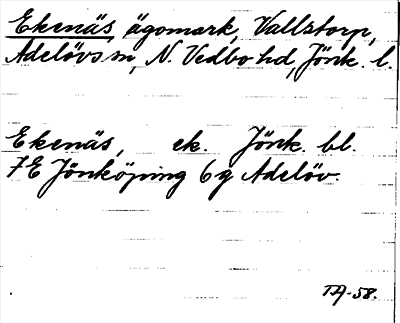 Ekenäs ägomark, Vallstorp,
Adelövs sn, N. Vedbo hd, Jönk. l.
Ekenäs, ek. Jönk. bl.
7E Jönköping 6g Adelöv.
TA-58.